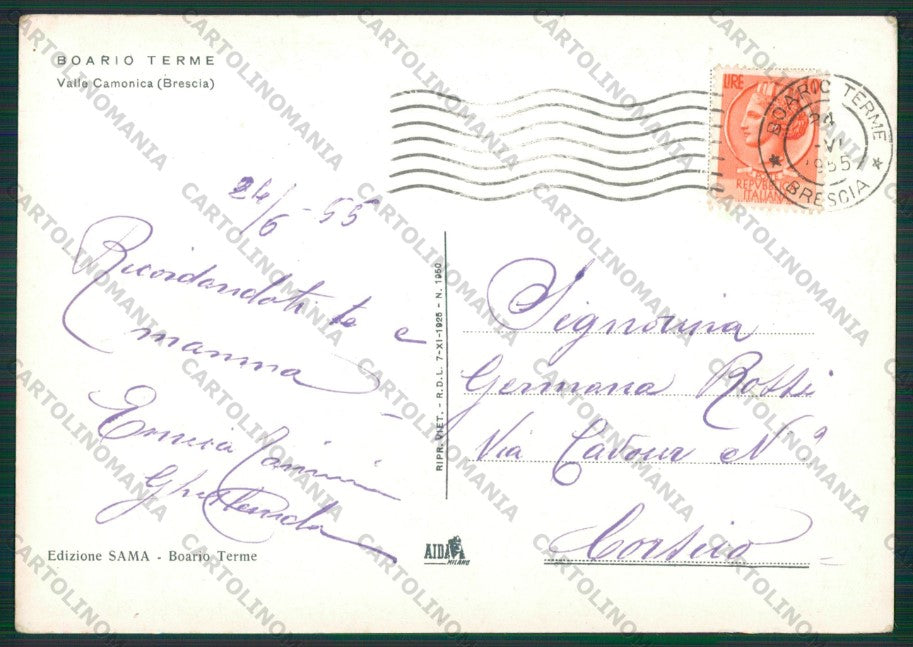 BOARIO TERME
Valle Camonica (Brescia)
LIRE 10
REPVBBLICA
ITALIANA
BOARIO TERME
24
-VI
1955
BRESCIA
24/6-55
Ricordandoti te e
mamma
Enrica
Edizione SAMA - Boario Terme
RIPR. VIET. - R.D.L. 7-XI-1925 - N. 1950
AIDA
MILANO
Signorina
Germana Rossi
Via Cavour N° 9
Corsico
CARTOLINOMANIA